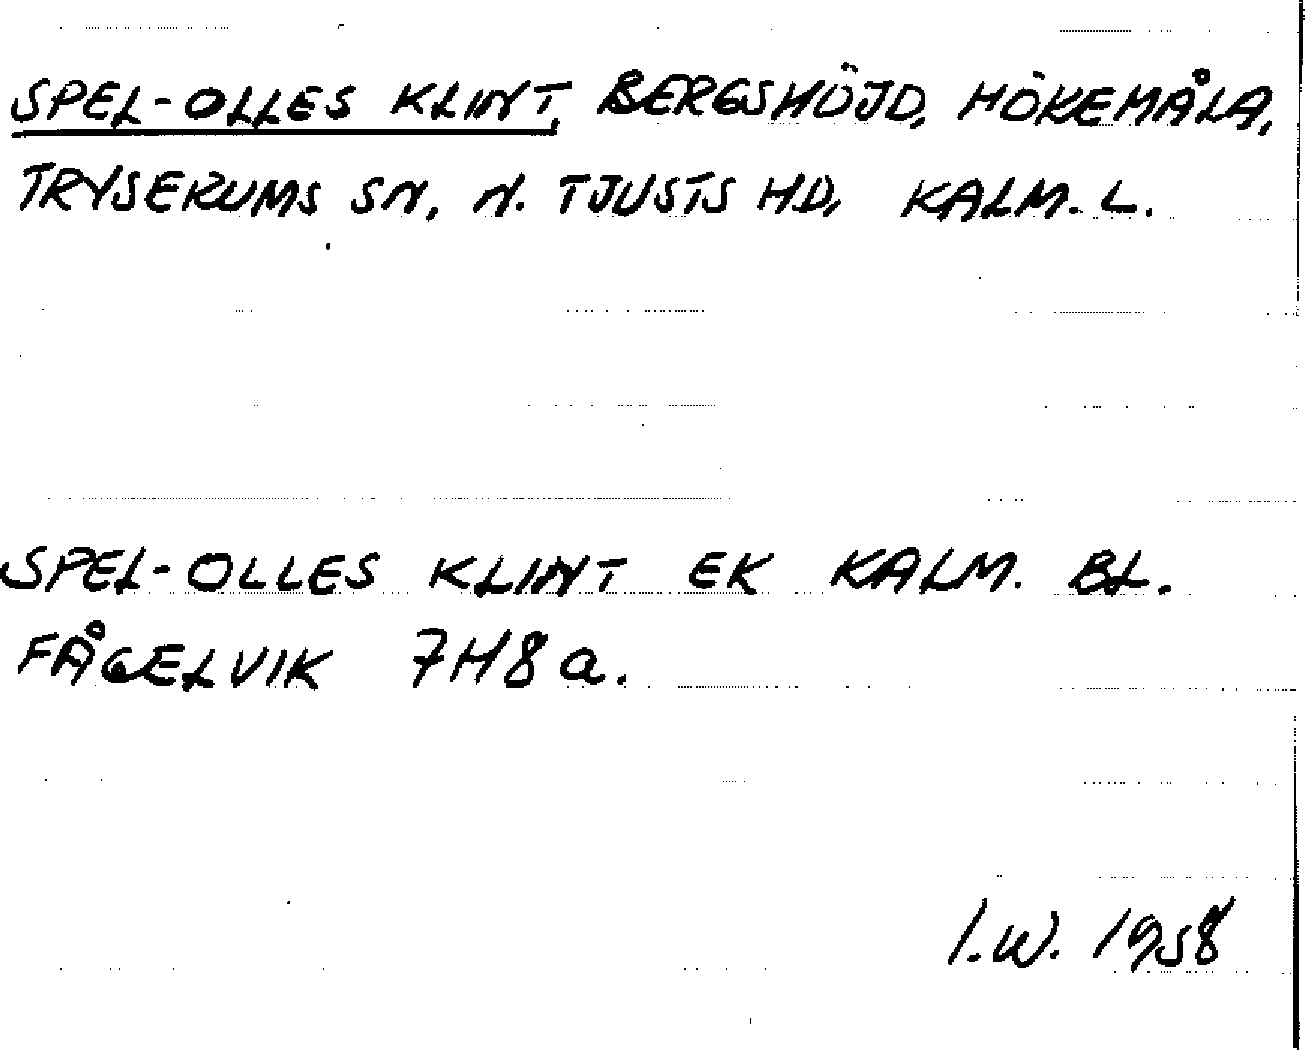 SPEL-OLLES KLINT, BERGSHÖJD, HÖKEMÅLA,
TRYSERUMS SN, N. TJUSTS HD, KALM. L.
SPEL-OLLES KLINT EK KALM. BL.
FÅGELVIK 7H8a.
I.W. 1958